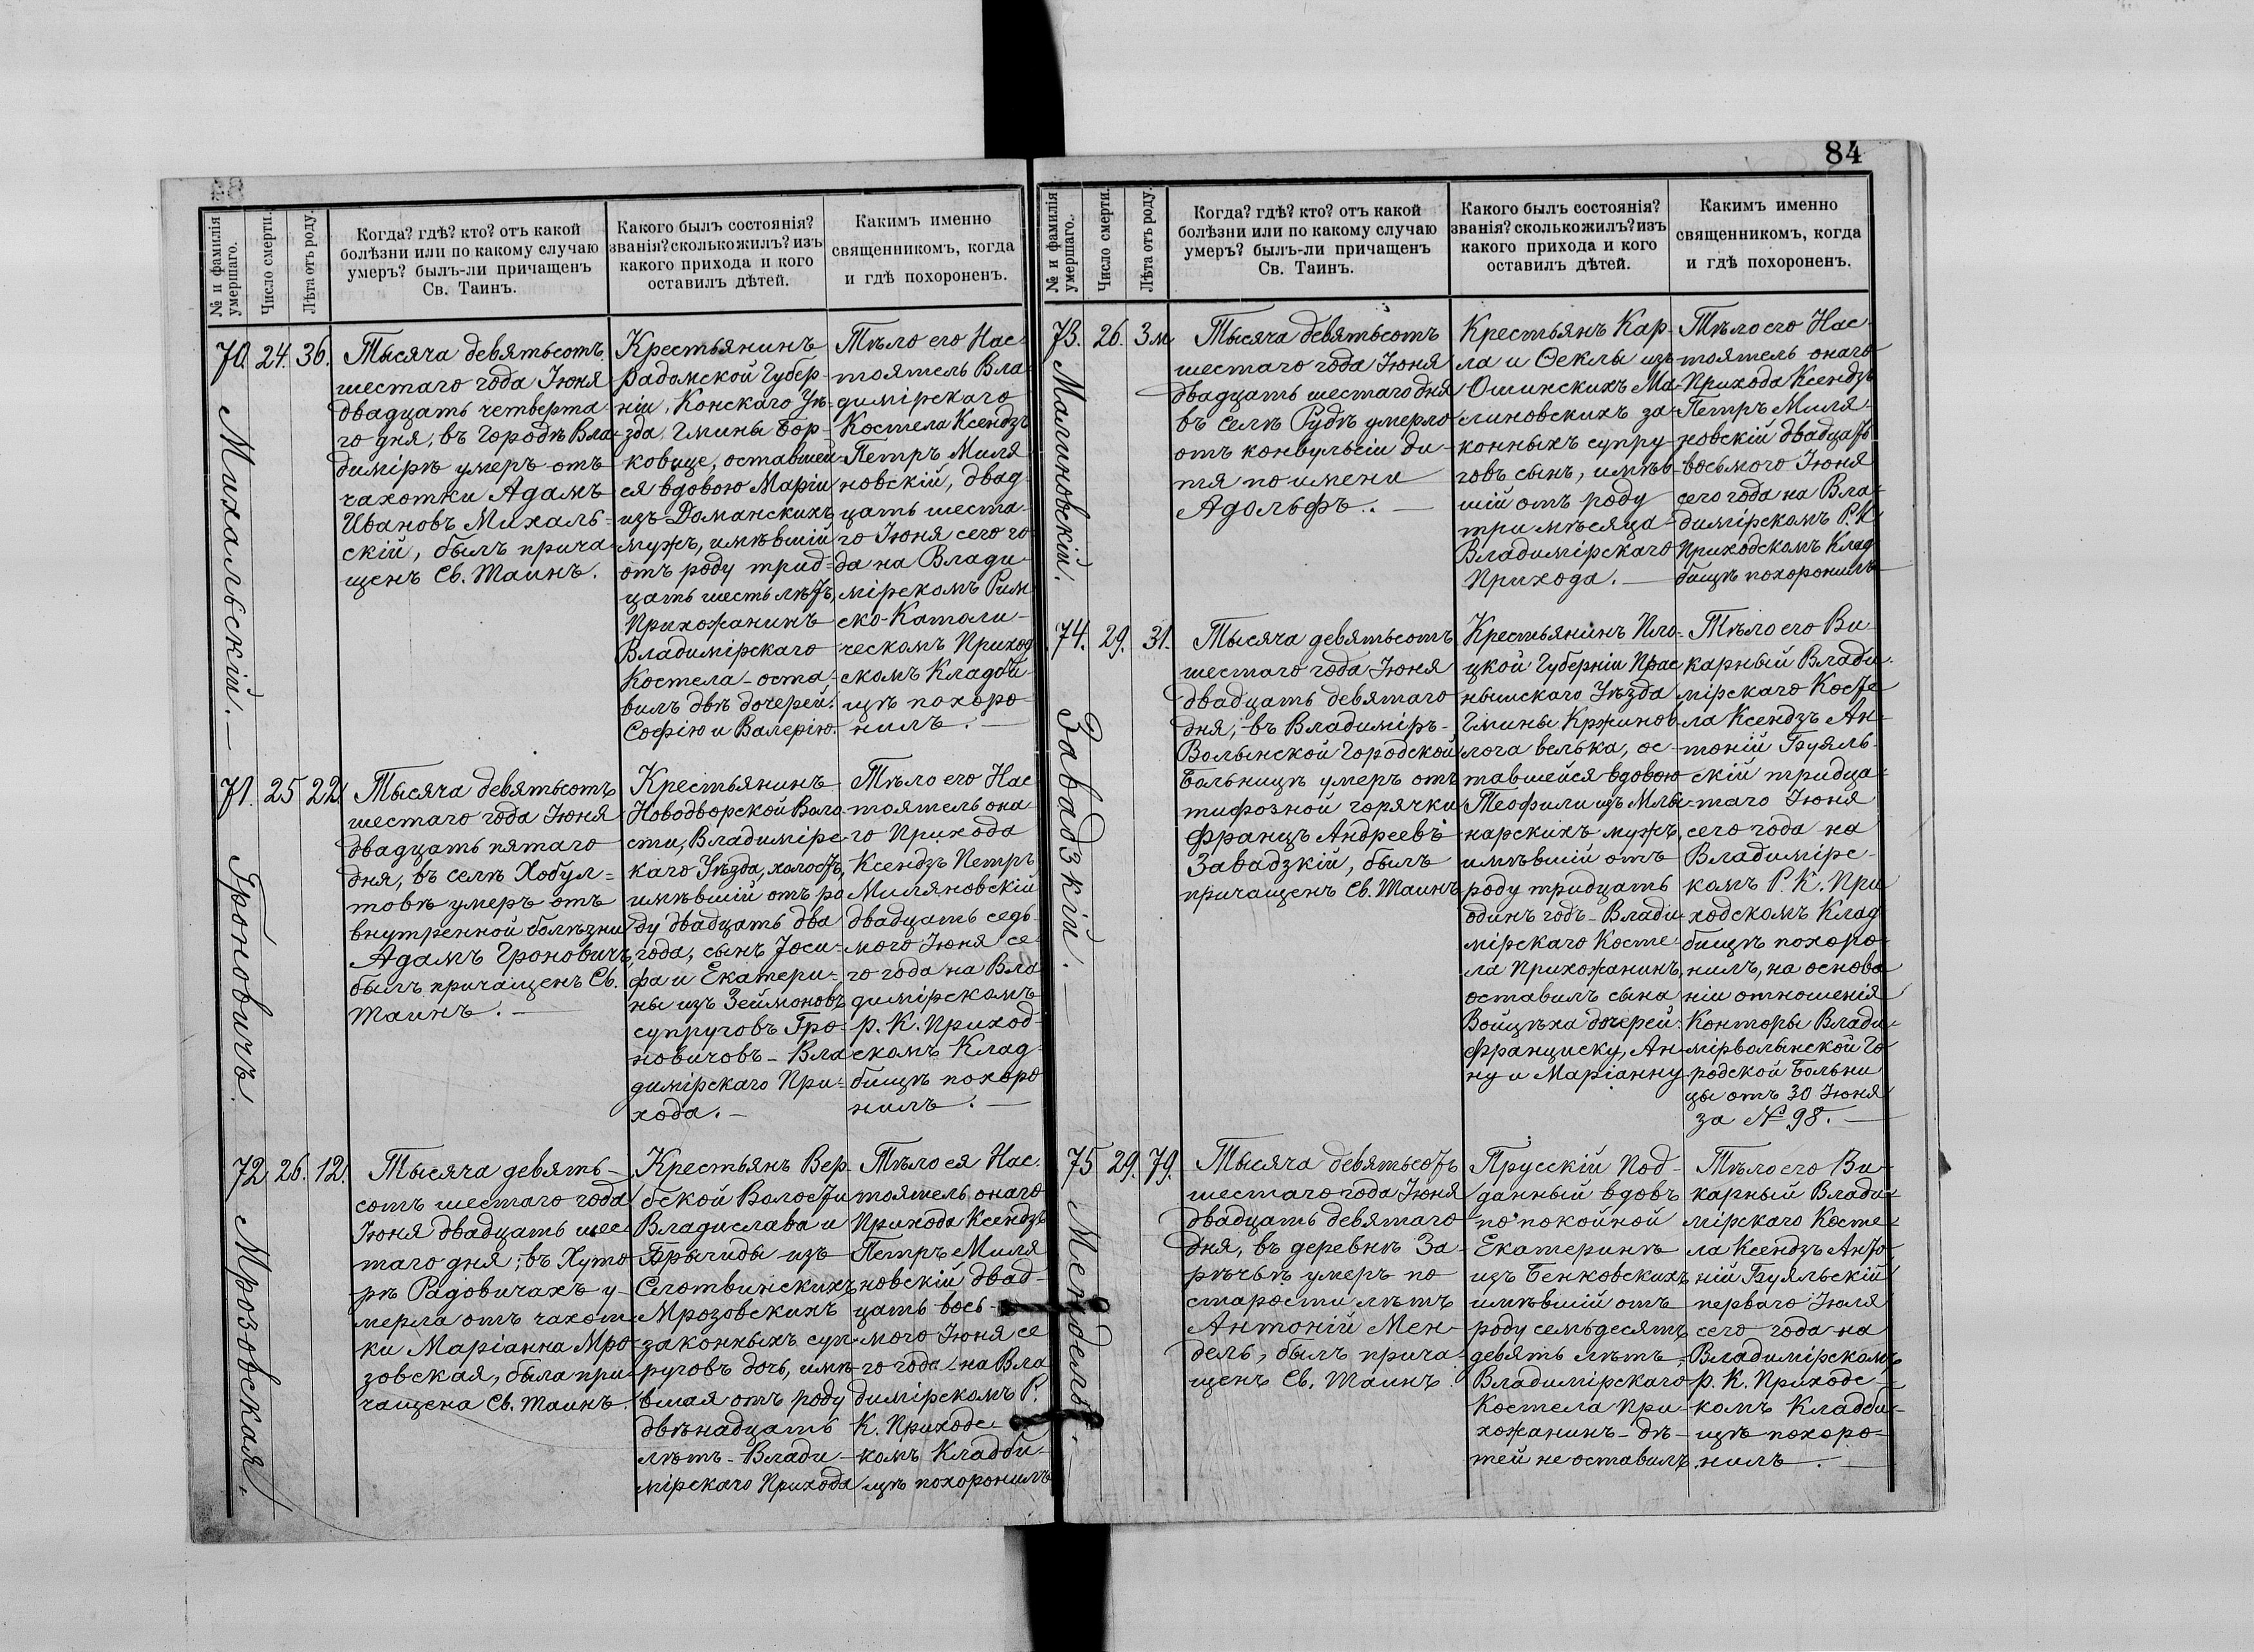 84
№ и фамилія умершаго.
Число смерти.
Лѣта отъ роду.
Когда? гдѣ? кто? отъ какой
болѣзни или по какому случаю
умеръ? былъ-ли причащенъ
Св. Таинъ.
Какого былъ состоянія?
званія? сколько жилъ? изъ
какого прихода и кого
оставилъ дѣтей.
Какимъ именно
священникомъ, когда
и гдѣ похороненъ.
70. 24. 36.
Михальскій.
Тысяча девятьсотъ
шестаго года Іюня
двадцать четверта-
го дня, въ Городѣ Вла-
димірѣ умеръ отъ
чахотки Адамъ
Ивановъ Михаль-
скій, былъ прича-
щенъ Св. Таинъ.
Крестьянинъ
Радомской Губер-
ніи, Конскаго Уѣ-
зда, Гмины Бор-
ковице, оставшей-
ся вдовою Маріи
изъ Доманскихъ
мужъ, имѣвшій
отъ роду трид-
цать шесть лѣтъ,
Прихожанинъ
Владимірскаго
Костела - оста-
вилъ двѣ дочерей:
Софію и Валерію.
Тѣло его Нас-
тоятель Вла-
димірскаго
Костела Ксендзъ
Петръ Миля-
новскій, двад-
цать шеста-
го Іюня сего го-
да на Влади-
мірскомъ Рим-
ско-Католи-
ческомъ Приход-
скомъ Кладби-
щѣ похоро-
нилъ. —
71. 25 22.
Гроновичъ.
Тысяча девятьсотъ
шестаго года Іюня
двадцать пятаго
дня, въ селѣ Хобул-
товѣ умеръ отъ
внутренной болѣзни
Адамъ Гроновичъ,
былъ причащенъ Св.
Таинъ. —
Крестьянинъ
Новодворской Воло-
сти, Владимірс-
каго Уѣзда, холостъ,
имѣвшій отъ ро-
ду двадцать два
года, сынъ Іоси-
фа и Екатери-
ны изъ Зеймоновъ
супруговъ Гро-
новичовъ - Вла-
димірскаго При-
хода. —
Тѣло его Нас-
тоятель она-
го Прихода
Ксендзъ Петръ
Миляновскій
двадцать седь-
мого Іюня се-
го года на Вла-
димірскомъ
Р. К. Приход-
скомъ Клад-
бищѣ похоро-
нилъ. —
72. 26. 12.
Мрозовская.
Тысяча девять-
сотъ шестаго года
Іюня двадцать шес-
таго дня, въ Хуто-
рѣ Радовичахъ у-
мерла отъ чахот-
ки Маріанна Мро-
зовская, была при-
чащена Св. Таинъ.
Крестьянъ Вер-
бской Волости
Владислава и
Брыгиды изъ
Слотвинскихъ
Мрозовскихъ
законныхъ суп-
руговъ дочь, имѣ-
вшая отъ роду
двѣнадцать
лѣтъ - Влади-
мірскаго Прихода
Тѣло ея Нас-
тоятель онаго
Прихода Ксендзъ
Петръ Миля-
новскій двад-
цать вось-
мого Іюня се-
го года на Вла-
димірскомъ Р.
К. Приходс-
комъ Кладби-
щѣ похоронилъ
№ и фамилія умершаго.
Число смерти.
Лѣта отъ роду.
Когда? гдѣ? кто? отъ какой
болѣзни или по какому случаю
умеръ? былъ-ли причащенъ
Св. Таинъ.
Какого былъ состоянія?
званія? сколько жилъ? изъ
какого прихода и кого
оставилъ дѣтей.
Какимъ именно
священникомъ, когда
и гдѣ похороненъ.
73. 26. 3 м
Малиновскій.
Тысяча девятьсотъ
шестаго года Іюня
двадцать шестаго дня
въ селѣ Рудѣ умерло
отъ конвульсіи ди-
тя по имени
Адольфъ. —
Крестьянъ Кар-
ла и Ѳеклы изъ
Ошинскихъ Ма-
линовскихъ за-
конныхъ супру-
говъ сынъ, имѣв-
шій отъ роду
три мѣсяца -
Владимірскаго
Прихода. —
Тѣло его Нас-
тоятель онаго
Прихода Ксендзъ
Петръ Миля-
новскій двадцать
восьмого Іюня
сего года на Вла-
димірскомъ Р. К.
Приходскомъ Клад-
бищѣ похоронилъ
74. 29. 31.
Завадзкій. —
Тысяча девятьсотъ
шестаго года Іюня
двадцать девятаго
дня, въ Владиміръ-
Волынской Городской
Больницѣ умеръ отъ
тифозной горячки
Францъ Андреевъ
Завадзкій, былъ
причащенъ Св. Таинъ
Крестьянинъ Пло-
цкой Губерніи Прас-
нышскаго Уѣзда
Гмины Кржинов-
лога велька, ос-
тавшейся вдовою
Теофили изъ Млы-
нарскихъ мужъ,
имѣвшій отъ
роду тридцать
одинъ годъ - Влади-
мірскаго Косте-
ла Прихожанинъ,
оставилъ сына
Войцѣха дочерей:
Франциску, Ан-
ну и Маріанну
Тѣло его Ви-
карный Влади-
мірскаго Косте-
ла Ксендзъ Ан-
тоній Буяль-
скій тридца-
таго Іюня
сего года на
Владимірс-
комъ Р. К. При-
ходскомъ Клад-
бищѣ похоро-
нилъ, на основа-
ніи отношенія
Конторы Влади-
мірволынской Го-
родской Больни-
цы отъ 30 Іюня
за № 98. —
75 29. 79.
Мендель.
Тысяча девятьсотъ
шестаго года Іюня
двадцать девятаго
дня, въ деревнѣ За-
рѣчьѣ умеръ по
старости лѣтъ
Антоній Мен-
дель, былъ прича-
щенъ Св. Таинъ.
Прусскій Под-
данный вдовъ
по покойной
Екатеринѣ
изъ Бенковскихъ
имѣвшій отъ
роду семьдесятъ
девять лѣтъ -
Владимірскаго
Костела При-
хожанинъ - дѣ-
тей не оставилъ.
Тѣло его Ви-
карный Влади-
мірскаго Косте-
ла Ксендзъ Анто-
ній Буяльскій
перваго Іюля
сего года на
Владимірскомъ
Р. К. Приходс-
комъ Кладби-
щѣ похоро-
нилъ. —